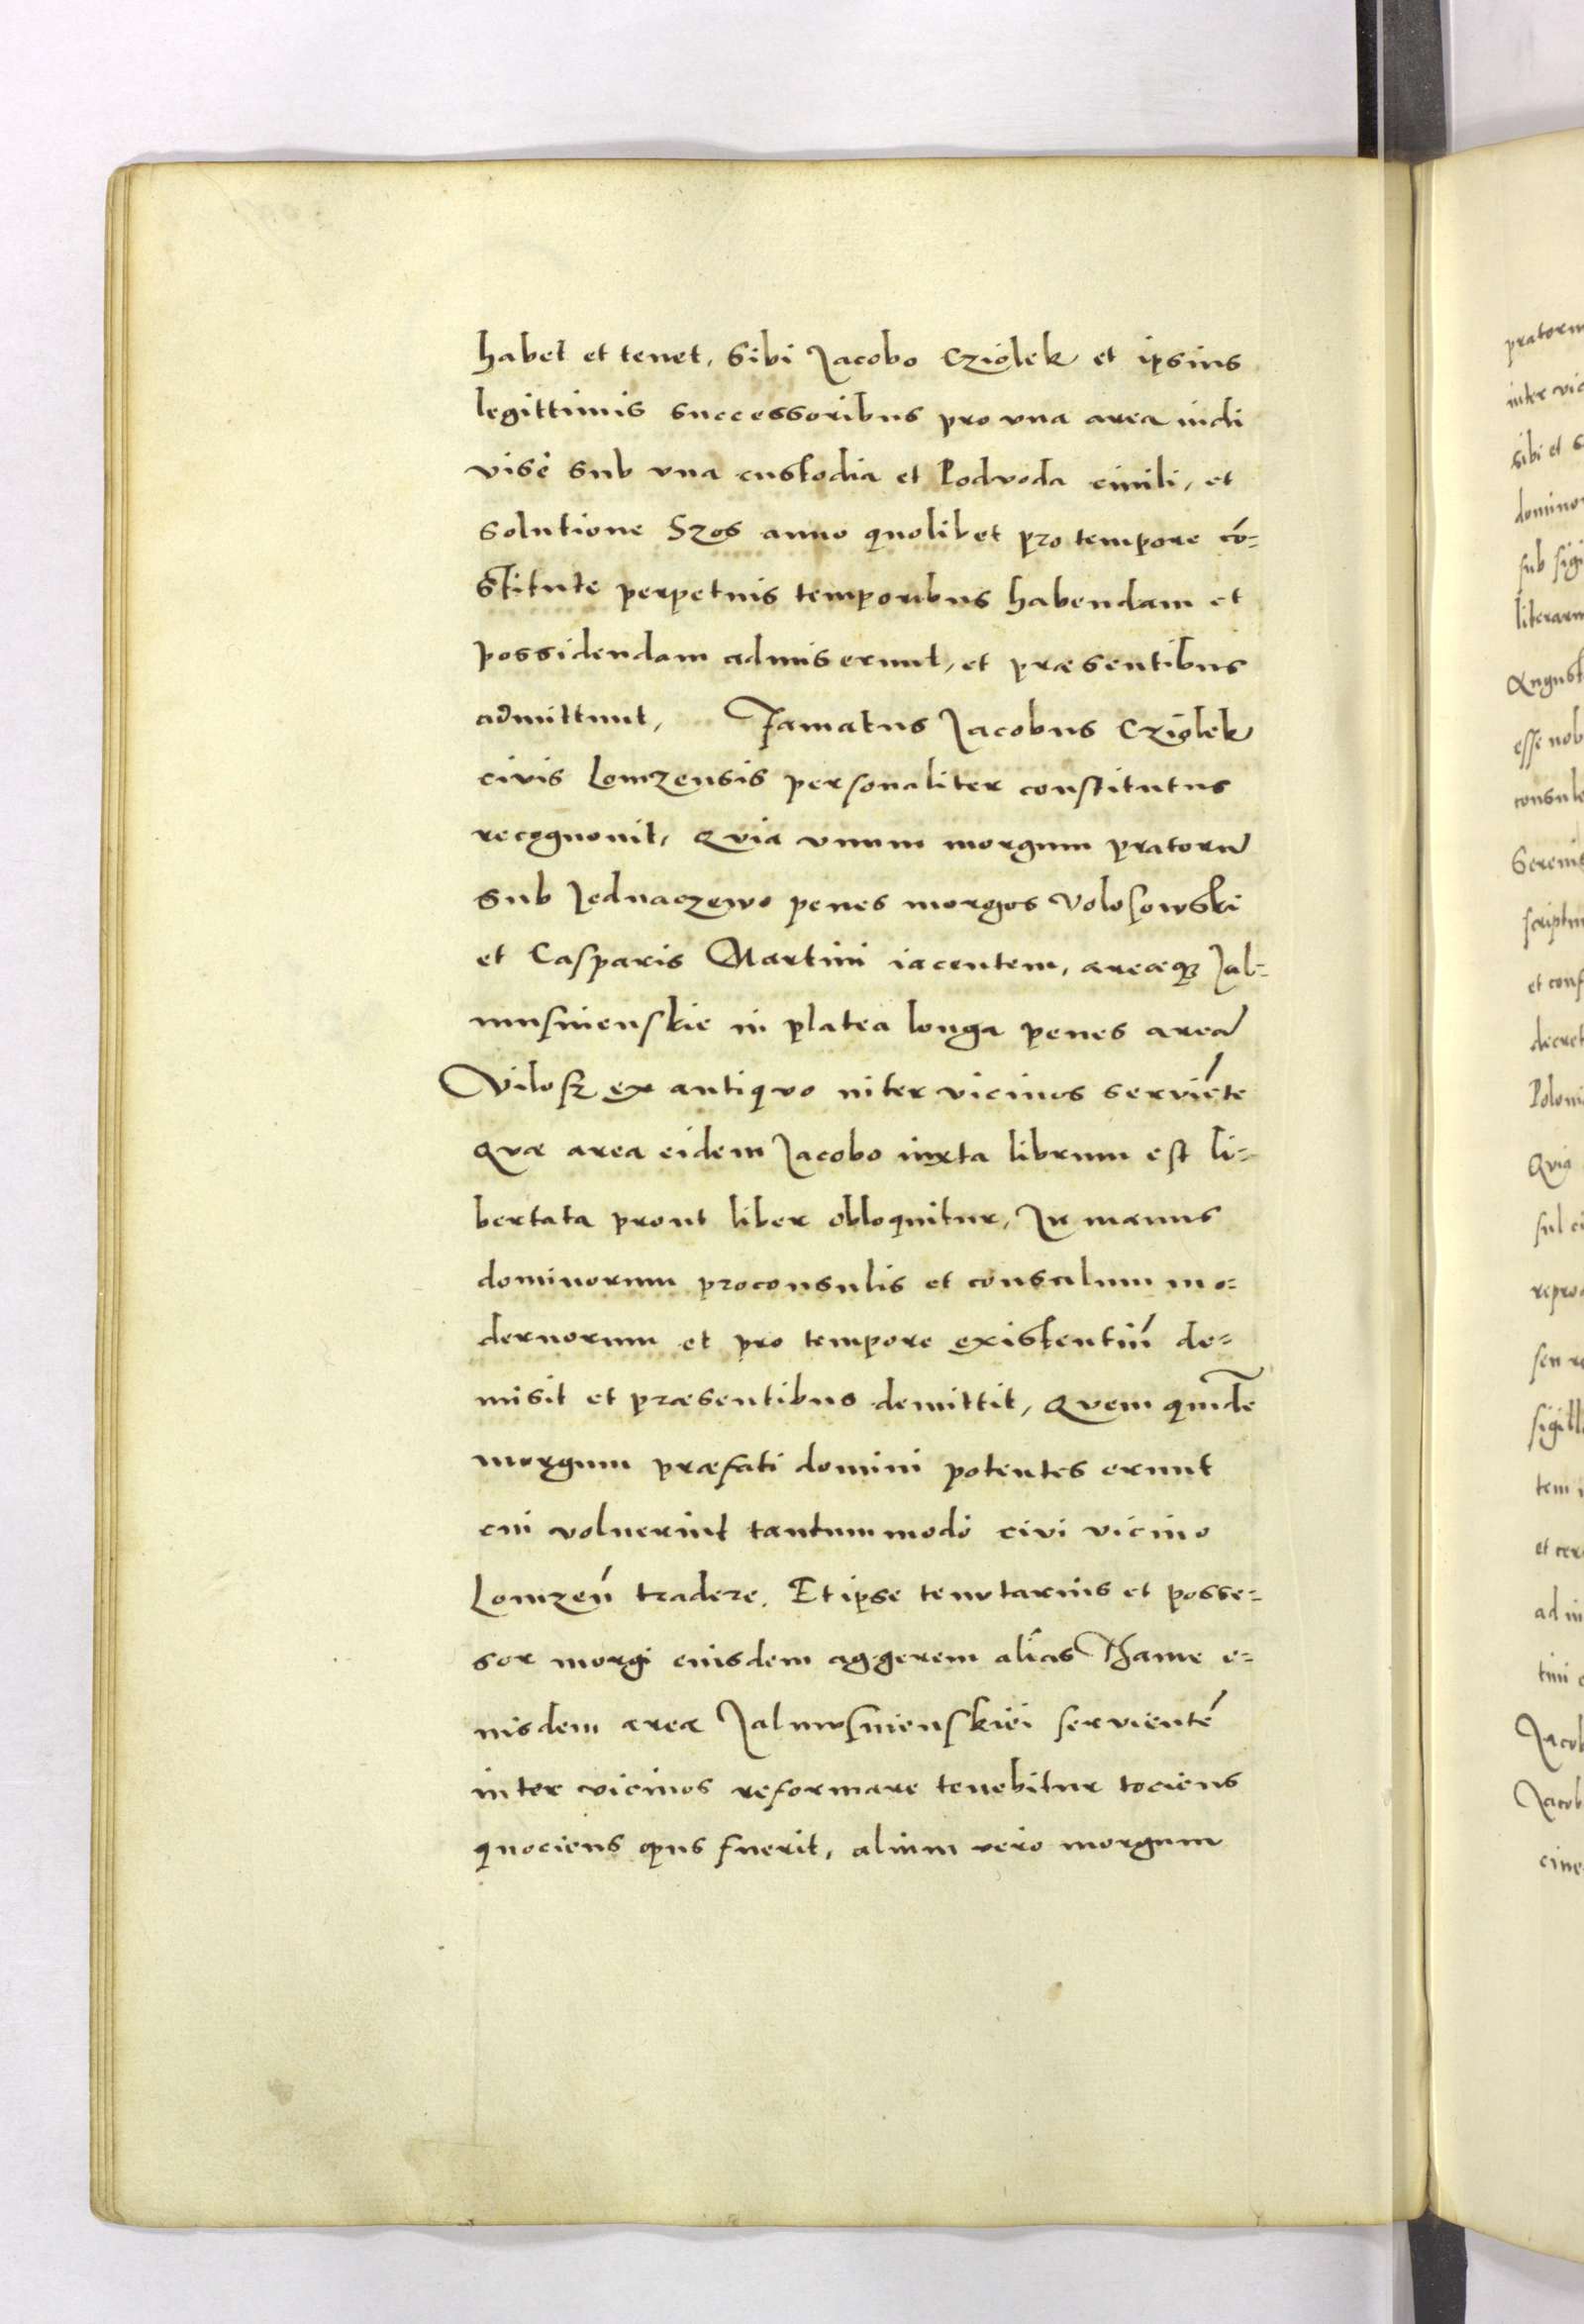 habet et tenet, sibi Jacobo Cziolek et ipsius
legittimis successoribus pro vna area indi
visè sub vna custodia et Podvoda ciuili, et
solutione Szos anno quolibet pro tempore có=
stitute perpetuis temporibus habendam et
possidendam admiserunt, et præsentibus
admittunt, Famatus Jacobus Cziolek
civis Lomzensis personaliter constitutus
recognouit, Quia vnum morgum pratorū
sub Jednaczewo penes morgos Volosowski
et Casparis Martini iacentem, areæq3 Jal=
musinienskie in platea longa penes areā
Vilosz ex antiquo inter vicinos serviéte
Quæ area eidem Jacobo iuxta librum est li=
bertata prout liber obloquitur, In manus
dominorum proconsulis et consulum mo=
dernorum et pro tempore existentiũ de=
misit et præsentibus demittit, Quem quidē
morgum præfati domini potentes erunt
cui voluerint tantummodò civi vicino
Lomzeń tradere. Et ipse tenutarius et posse=
sor morgi eiusdem aggerem aliàs Thame e=
iusdem areæ Jalmusinienskiei servienté
inter vicinos reformare tenebitur tociens
quociens opus fuerit, alium vero morgum
pratorum
inter vic
sibi et s
domino
sub sigi
literarum
August
esse nob
consule
Serenis
scriptum
et conf
decret
Poloni
Quia
sul ci
sen re
sigill
tem
ad in
Jacob
Jacob